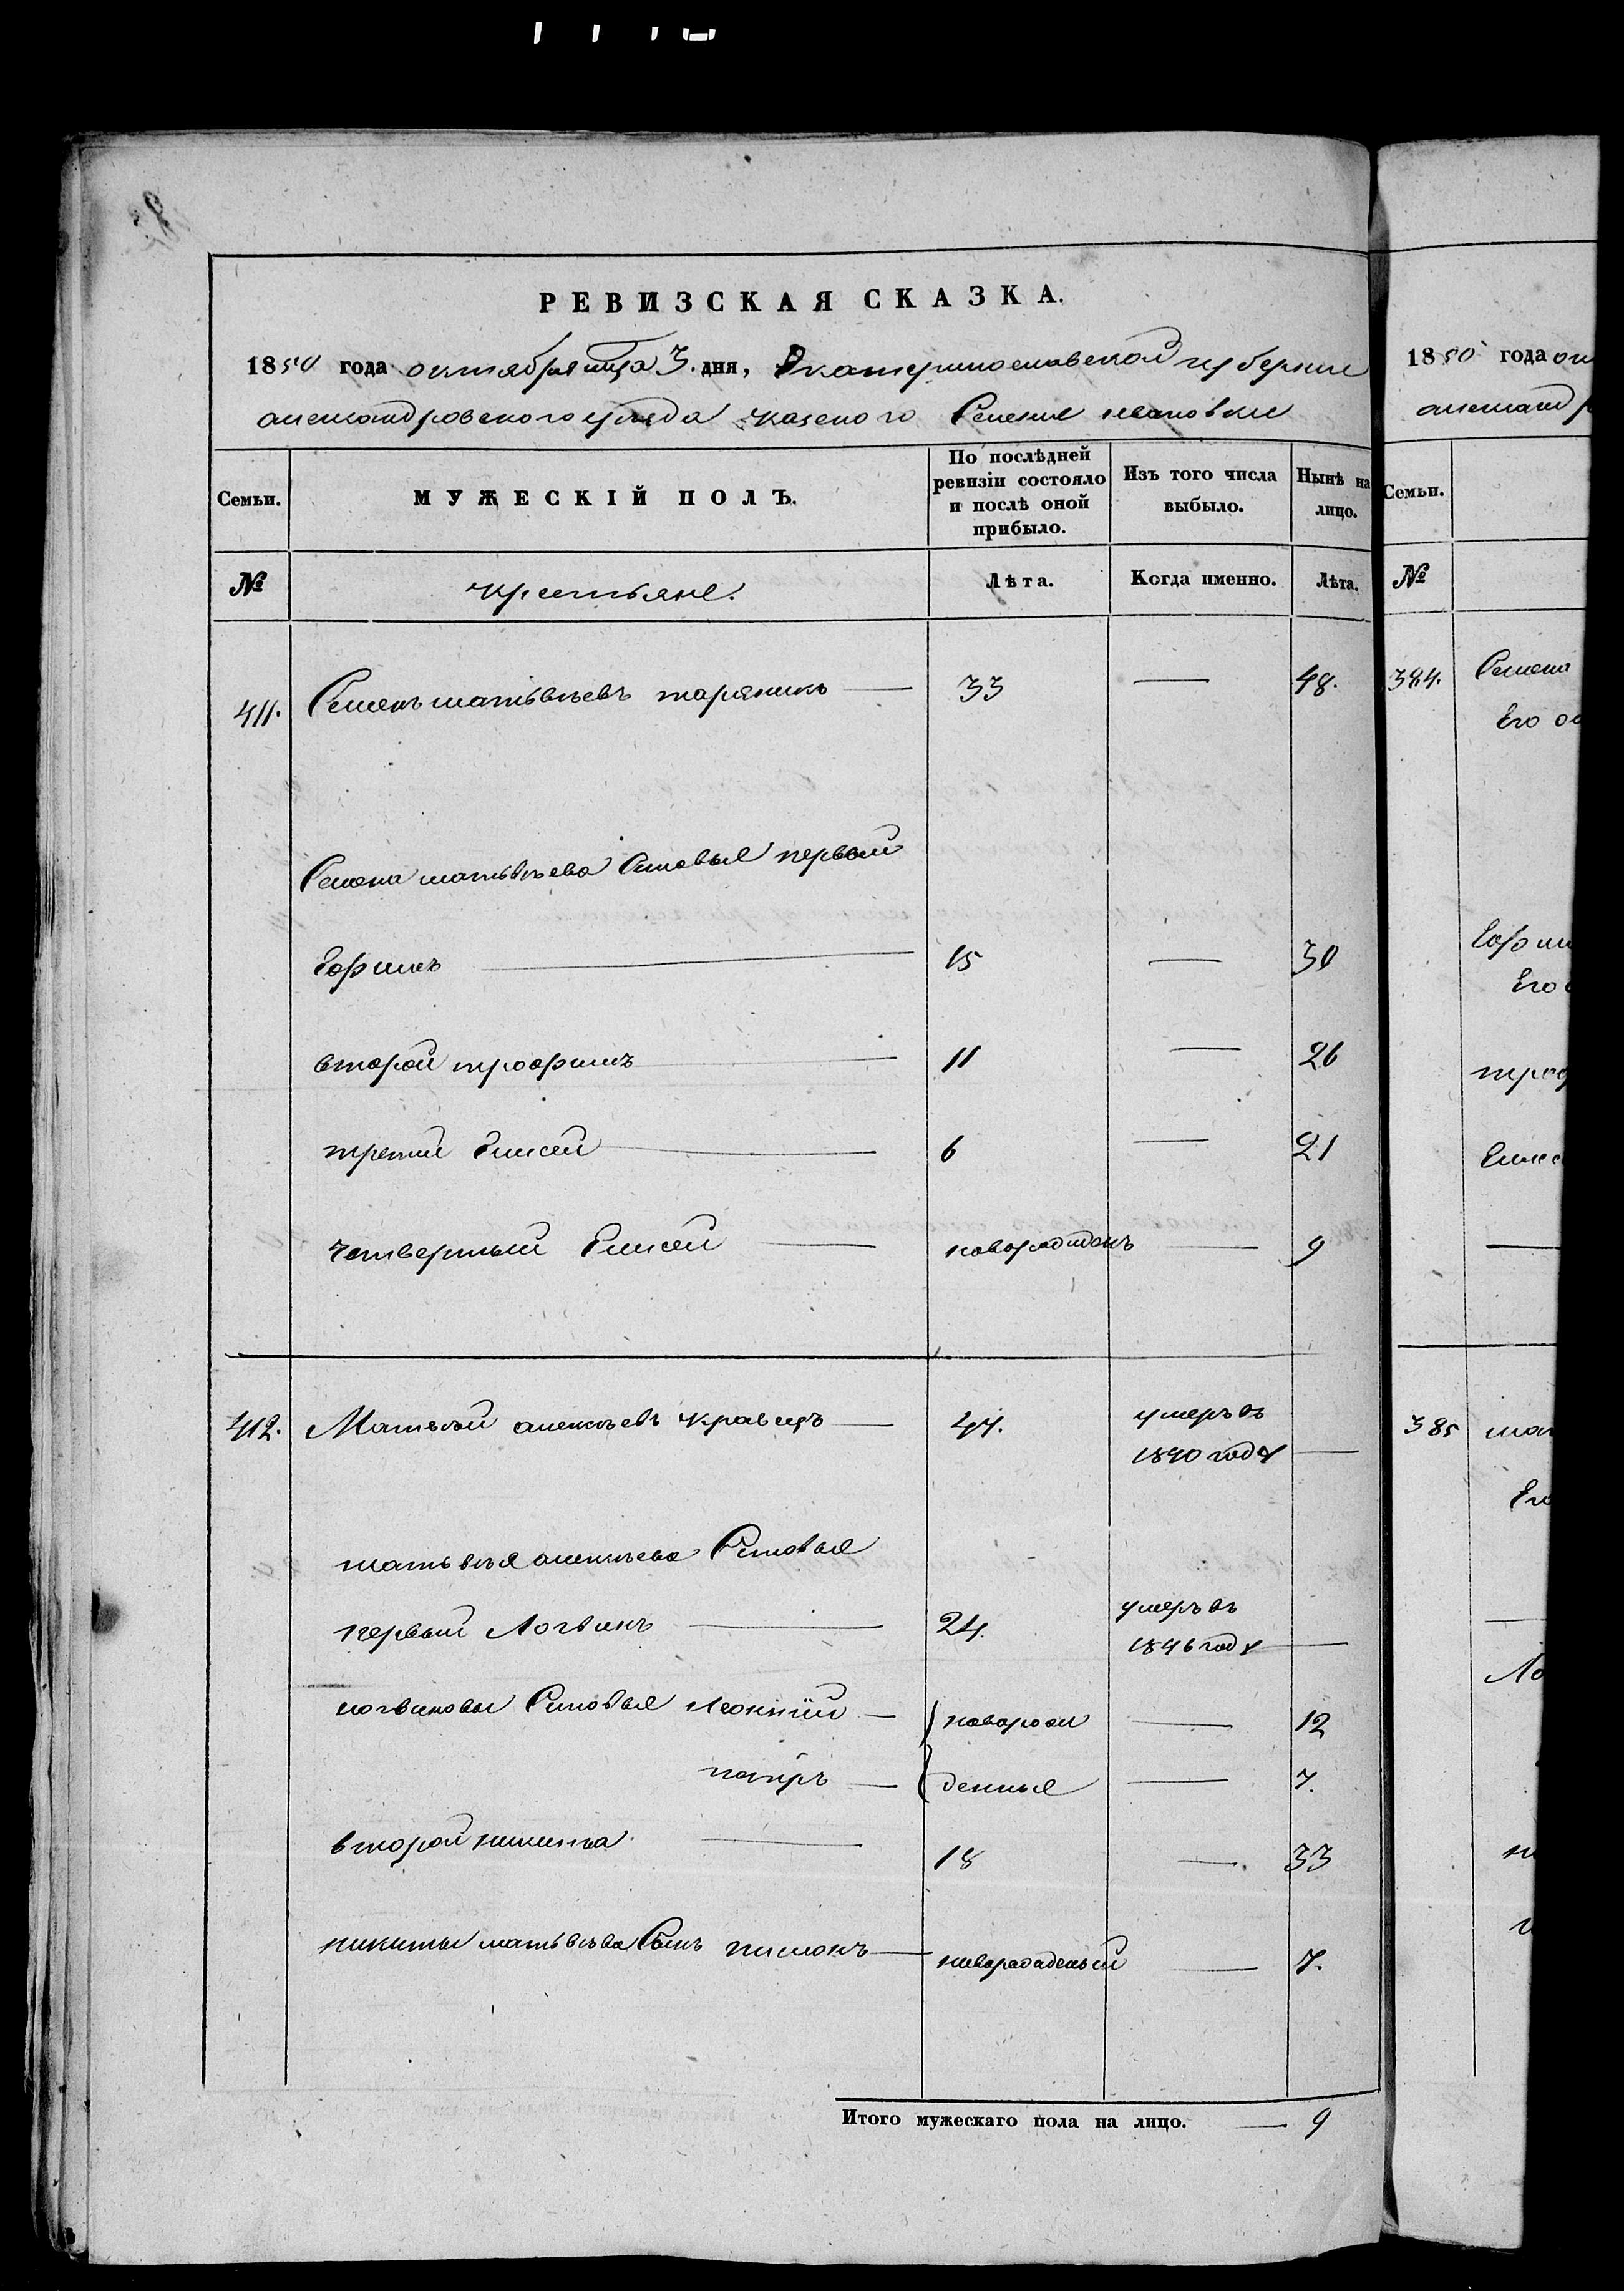 РЕВИЗСКАЯ СКАЗКА.
1850 года октября мца 3. дня, Екатеринославской губернии
александровского уезда казеного Селения ивановки
Семьи.
МУЖЕСКІЙ ПОЛЪ.
По послѣдней ревизіи состояло и послѣ оной прибыло.
Изъ того числа выбыло.
Нынѣ на лицо.
№
крестьяне.
Лѣта.
Когда именно.
Лѣта.
411. Семенъ матвѣевъ таряникъ — 33 — 48.
Семена матвѣева Сыновья первый
Ефимъ — 15 — 30
второй трофимъ — 11 — 26
третий Елисей — 6 — 21
четвертый Елисей — новорожденъ — 9
412. Матвѣй алексѣевъ кравецъ — 47. умеръ въ
1840 году —
матвѣя алексѣева Сыновья
первый Логвинъ — 24. умеръ въ
1846 году —
логвиновы Сыновья Леонтій — новорож — 12
петръ — денные — 7.
второй никита — 18 — 33
никиты матвѣева Сынъ пимонъ — новорожденый — 7.
Итого мужескаго пола на лицо. — 9
1850 года ок
александр
Семьи.
№
384. Семена
Его
Ефим
Его
троф
Елисе
—
385 мат
Его
—
Ло